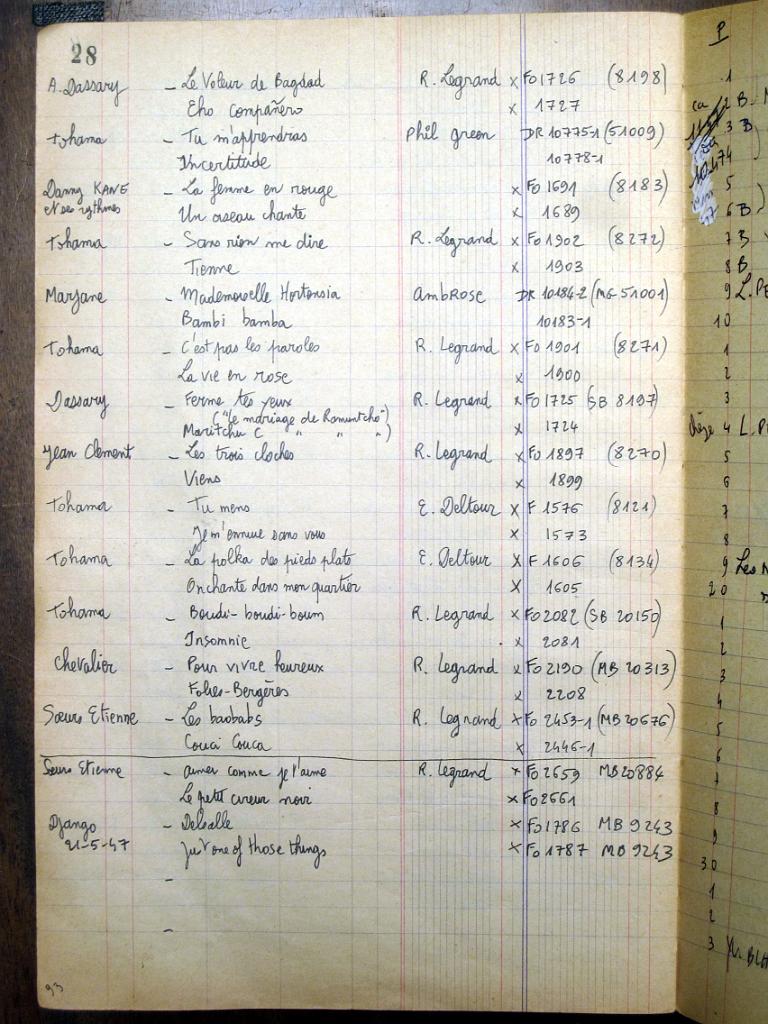 28
A. Dassary - Le Voleur de Bagdad R. Legrand x Fo 1726 (8198)
Eho compañero x 1727
Tohama - Tu m'apprendras Phil green DR 10775-1 (51009)
Incertitude 10778-1
Danny KANE - La femme en rouge x Fo 1691 (8183)
et ses rythmes Un oiseau chante x 1689
Tohama - Sans rien me dire R. Legrand x Fo 1902 (8272)
Tienne x 1903
Marjane - Mademoiselle Hortensia AmbRose DR 10184-2 (MG 51001)
Bambi bamba 10183-1
Tohama - C'est pas les paroles R. Legrand x Fo 1901 (8271)
La vie en rose x 1900
Dassary - Ferme tes yeux R. Legrand x Fo 1725 (SB 8197)
("le mariage de Ramuntcho")
Maritchu ( " " " ) x 1724
Jean Clement - Les trois cloches R. Legrand x Fo 1897 (8270)
Viens x 1899
Tohama - Tu mens E. Deltour x F 1576 (8121)
Je m'ennuie sans vous x 1573
Tohama - La polka des pieds plats E. Deltour x F 1606 (8134)
On chante dans mon quartier x 1605
Tohama - Boudi-boudi-boum R. Legrand x Fo 2082 (SB 20150)
Insomnie x 2081
Chevalier - Pour vivre heureux R. Legrand x Fo 2190 (MB 20313)
Folies-Bergères x 2208
Sœurs Etienne - Les baobabs R. Legrand x Fo 2453-1 (MB 20676)
Couci Couca x 2446-1
Sœurs Etienne - aimer comme je t'aime R. Legrand x Fo 2659 MB 20884
Le petit cireur noir x Fo 2661
Django - Delsalle x Fo 1786 MB 9243
21-5-47 Just one of those things x Fo 1787 MB 9243
-
-
93
P
1
ca 2 B.
3 B
4
5
6 B
7 B
8 B
9 L. PE
10
1
2
3
4 L. P
5
6
7
8
9 Les
20
1
2
3
4
5
6
7
8
9
30
1
2
3